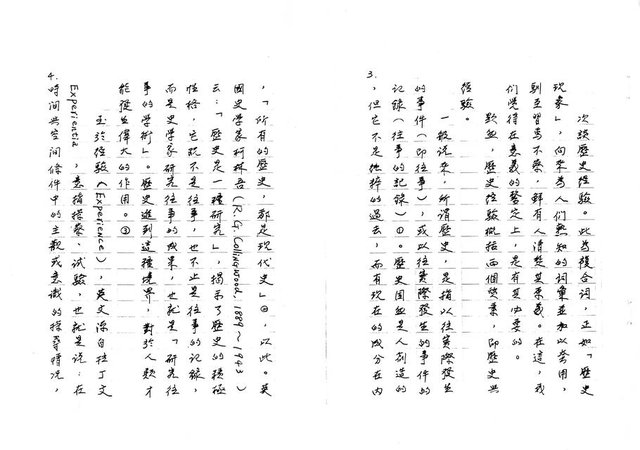 3.
次談歷史經驗。此為複合詞,正如「歷史
現象」,向來為人們熟知的詞彙並加以套用,
馴至習焉不察,鮮有人清楚其來義。在這,我
們覺得在意義的釐定上,是有其必要的。
歷史經驗概括兩個要素,即歷史與
經驗。
一般說來,所謂歷史,是指以往實際發生
的事件(即往事),或以往實際發生的事件的
記錄(往事的記錄)①。歷史固然是人創造的
,但它不是純粹的過去,而有現在的成分在內
4.
,「所有的歷史,都是現代史」②,以此。英
國史學家柯林吾(R.G. Collingwood, 1889~1943)
云:「歷史是一種研究」,揭示了歷史的積極
性格,它既不是往事,也不止是往事的記錄,
而是史學家研究往事的成果,也就是「研究往
事的學術」。歷史進到這種境界,對於人類才
能發生偉大的作用。③
至於經驗(Experience),英文源自拉丁文
Experientia,意指探察、試驗,也就是說:在
時間與空間條件中的主觀或意識的探尋情況,